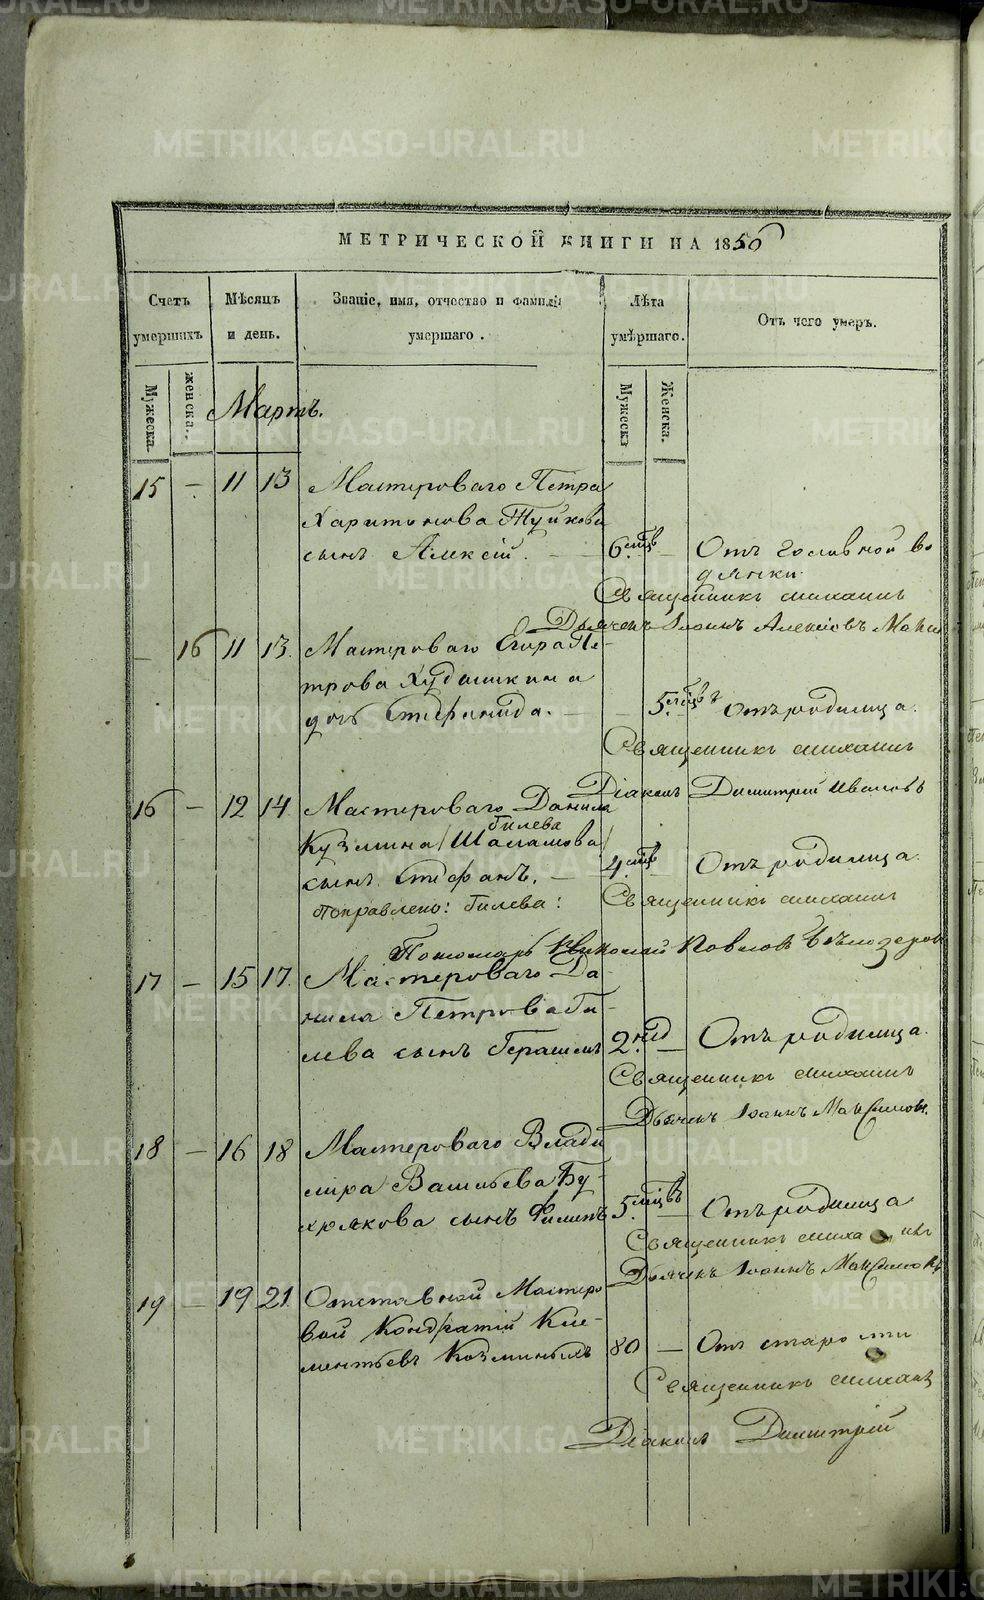 METRIKI.GASO-URAL.RU
МЕТРИЧЕСКОЙ КНИГИ НА 1856
Счетъ умершихъ
Мѣсяцъ и день.
Званіе, имя, отчество и фамилія умершаго.
Лѣта умѣршаго.
Отъ чего умеръ.
Мужеска.
женска.
Мужеска
Женска.
Мартъ.
15 — 11 13 Мастероваго Петра
Харитонова
сынъ Алексій. — 6. мцв — Отъ головной во
дянки.
Священникъ Михаилъ
Дьячекъ Іоаннъ Алексіевъ
— 16 11 13. Мастероваго Егора Пе-
трова Худышкина
дочь Стефанида. — — 5. мцвъ Отъ родимца.
Священникъ Михаилъ
Діаконъ Димитрій Ивановъ
16 — 12 14. Мастероваго Данила
Гилева
Кузмина /Шаламова/
сынъ Стефанъ. — 4. мцв — Отъ родимца.
поправлено: Гилева:
Священникъ Михаилъ
Пономарь Николай Павловъ Бѣлозеровъ
17 — 15 17. Мастероваго Да-
нила Петрова Ги-
лева сынъ Герасимъ 2. нед — Отъ родимца.
Священникъ Михаилъ
Дьячекъ Іоаннъ Максимовъ.
18 — 16 18 Мастероваго Влади
мира Васильева Бу-
хрякова сынъ Филипъ 5. мцвъ — Отъ родимца
Священникъ Михаилъ
Дьячекъ Іоаннъ Максимовъ
19 — 19 21. Отставной Мастеро
вой Кондратій Кле-
ментьевъ Козминыхъ 80 — Отъ старости
Священникъ Михаилъ
Діаконъ Димитрій